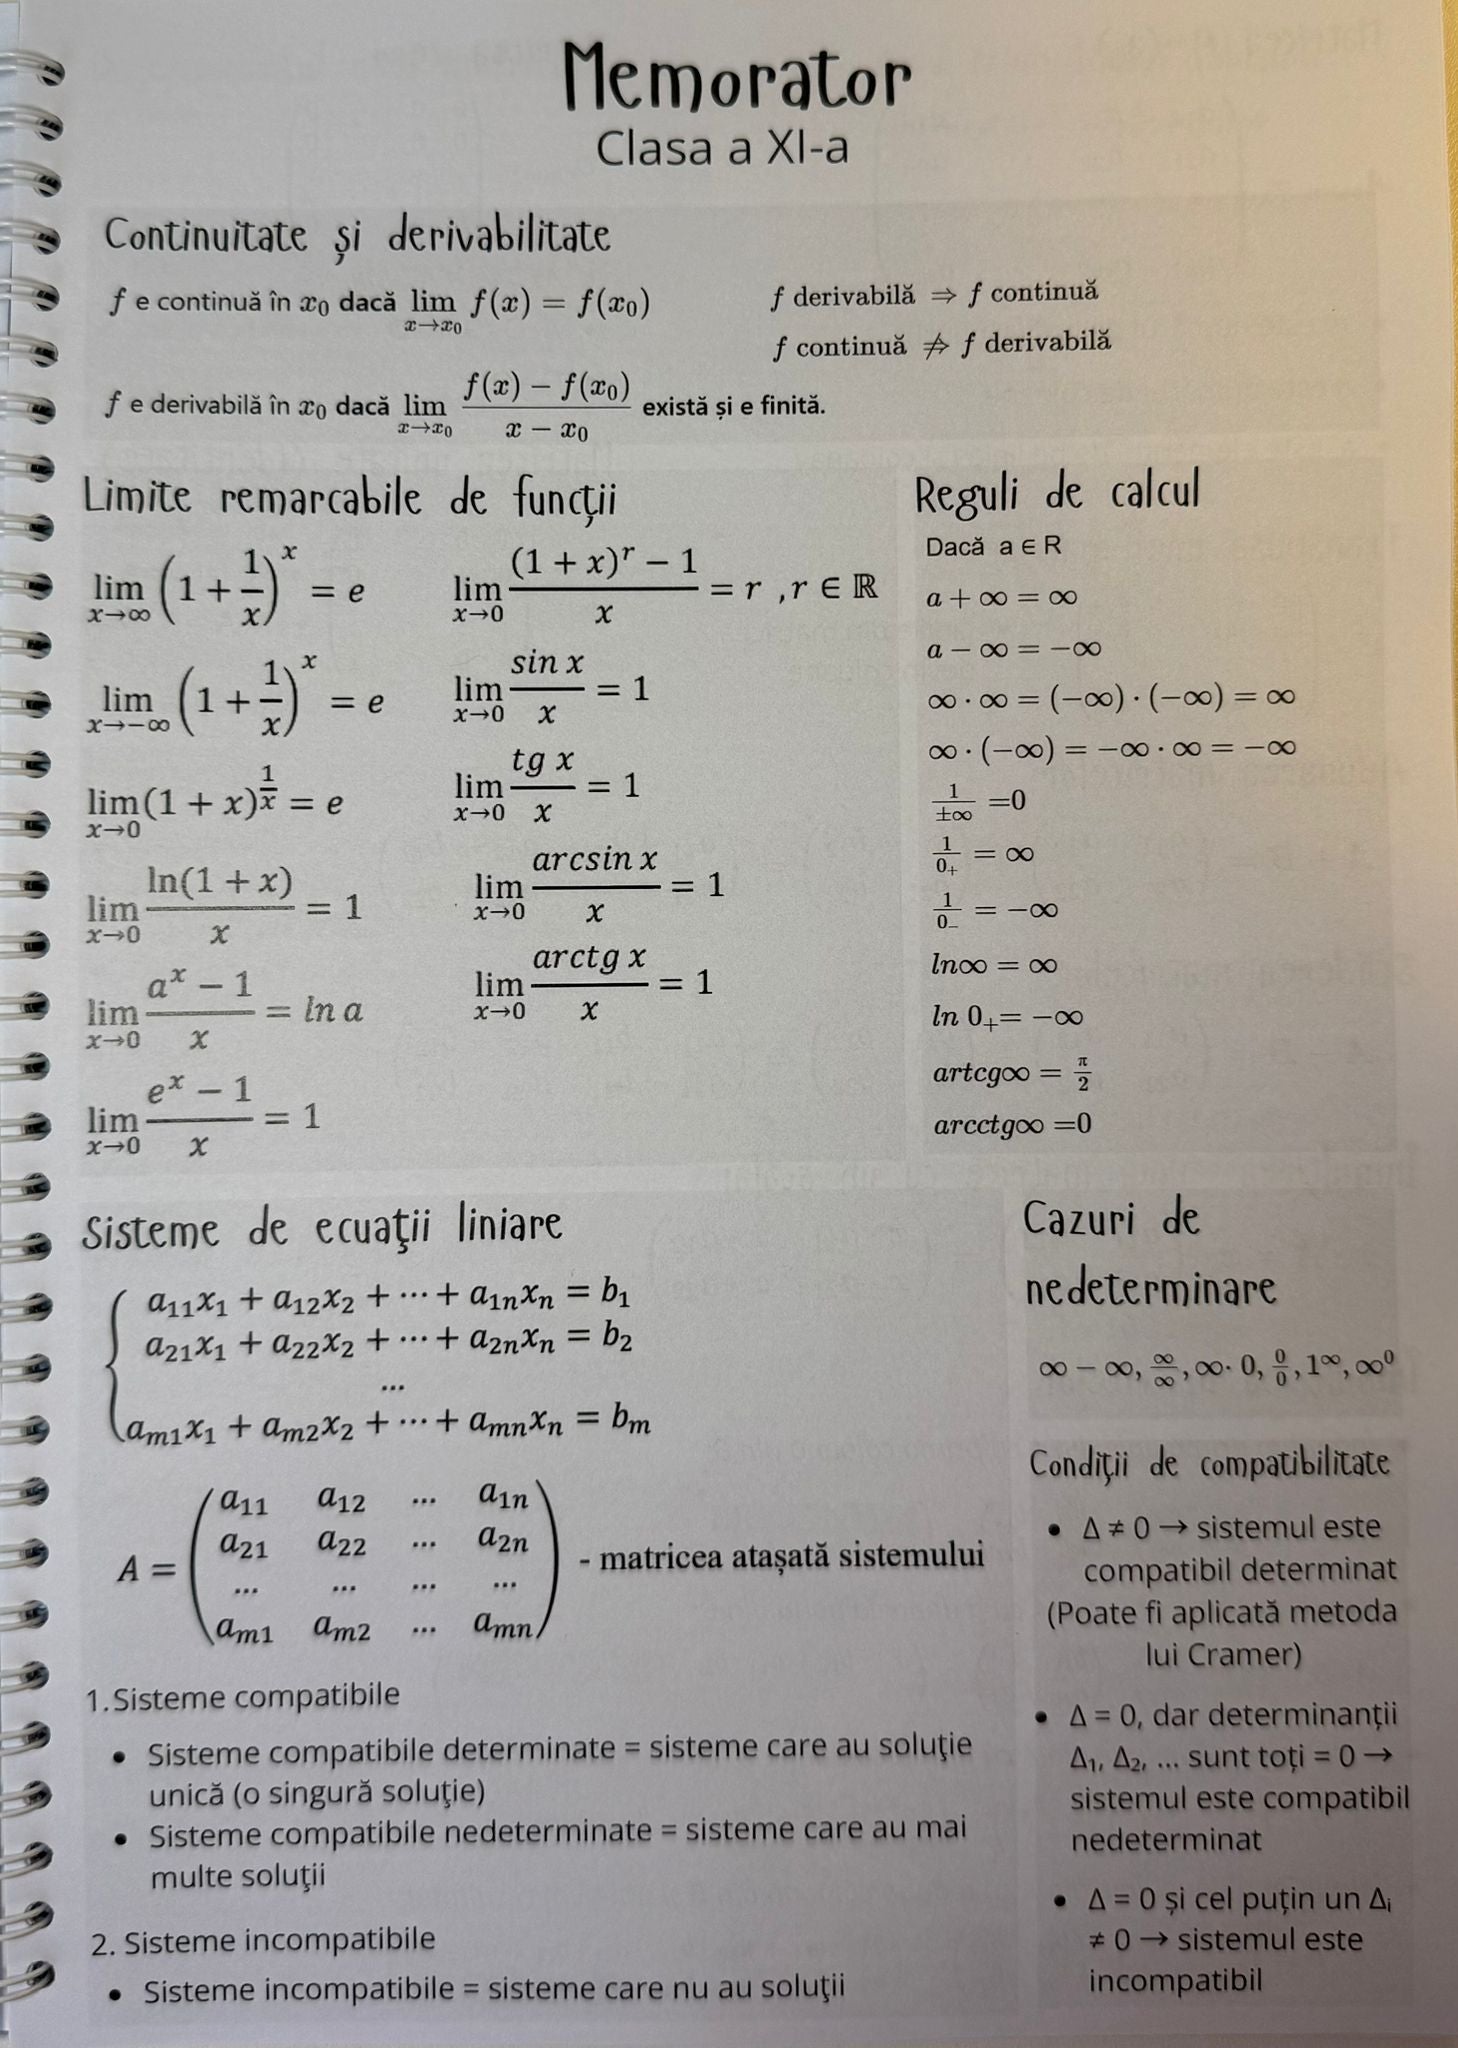 Memorator
Clasa a XI-a
Continuitate și derivabilitate
f e continuă în x₀ dacă lim x→x₀ f(x) = f(x₀)
f derivabilă ⇒ f continuă
f continuă ⇏ f derivabilă
f e derivabilă în x₀ dacă lim x→x₀ (f(x) − f(x₀))/(x − x₀) există și e finită.
Limite remarcabile de funcții
lim x→∞ (1 + 1/x)^x = e
lim x→−∞ (1 + 1/x)^x = e
lim x→0 (1 + x)^(1/x) = e
lim x→0 ln(1 + x)/x = 1
lim x→0 (a^x − 1)/x = ln a
lim x→0 (e^x − 1)/x = 1
lim x→0 ((1 + x)^r − 1)/x = r ,r ∈ ℝ
lim x→0 sin x/x = 1
lim x→0 tg x/x = 1
lim x→0 arcsin x/x = 1
lim x→0 arctg x/x = 1
Reguli de calcul
Dacă a ∈ R
a + ∞ = ∞
a − ∞ = −∞
∞ · ∞ = (−∞) · (−∞) = ∞
∞ · (−∞) = −∞ · ∞ = −∞
1/±∞ =0
1/0₊ = ∞
1/0₋ = −∞
ln∞ = ∞
ln 0₊= −∞
artcg∞ = π/2
arcctg∞ =0
Sisteme de ecuaţii liniare
a₁₁x₁ + a₁₂x₂ + ⋯ + a₁ₙxₙ = b₁
a₂₁x₁ + a₂₂x₂ + ⋯ + a₂ₙxₙ = b₂
...
aₘ₁x₁ + aₘ₂x₂ + ⋯ + aₘₙxₙ = bₘ
a₁₁ a₁₂ ... a₁ₙ
a₂₁ a₂₂ ... a₂ₙ
A = ... ... ... ... - matricea atașată sistemului
aₘ₁ aₘ₂ ... aₘₙ
1. Sisteme compatibile
• Sisteme compatibile determinate = sisteme care au soluţie
unică (o singură soluţie)
• Sisteme compatibile nedeterminate = sisteme care au mai
multe soluţii
2. Sisteme incompatibile
• Sisteme incompatibile = sisteme care nu au soluţii
Cazuri de
nedeterminare
∞ − ∞, ∞/∞, ∞· 0, 0/0, 1^∞, ∞⁰
Condiţii de compatibilitate
• Δ ≠ 0 → sistemul este
compatibil determinat
(Poate fi aplicată metoda
lui Cramer)
• Δ = 0, dar determinanții
Δ₁, Δ₂, ... sunt toți = 0 →
sistemul este compatibil
nedeterminat
• Δ = 0 și cel puțin un Δᵢ
≠ 0 → sistemul este
incompatibil